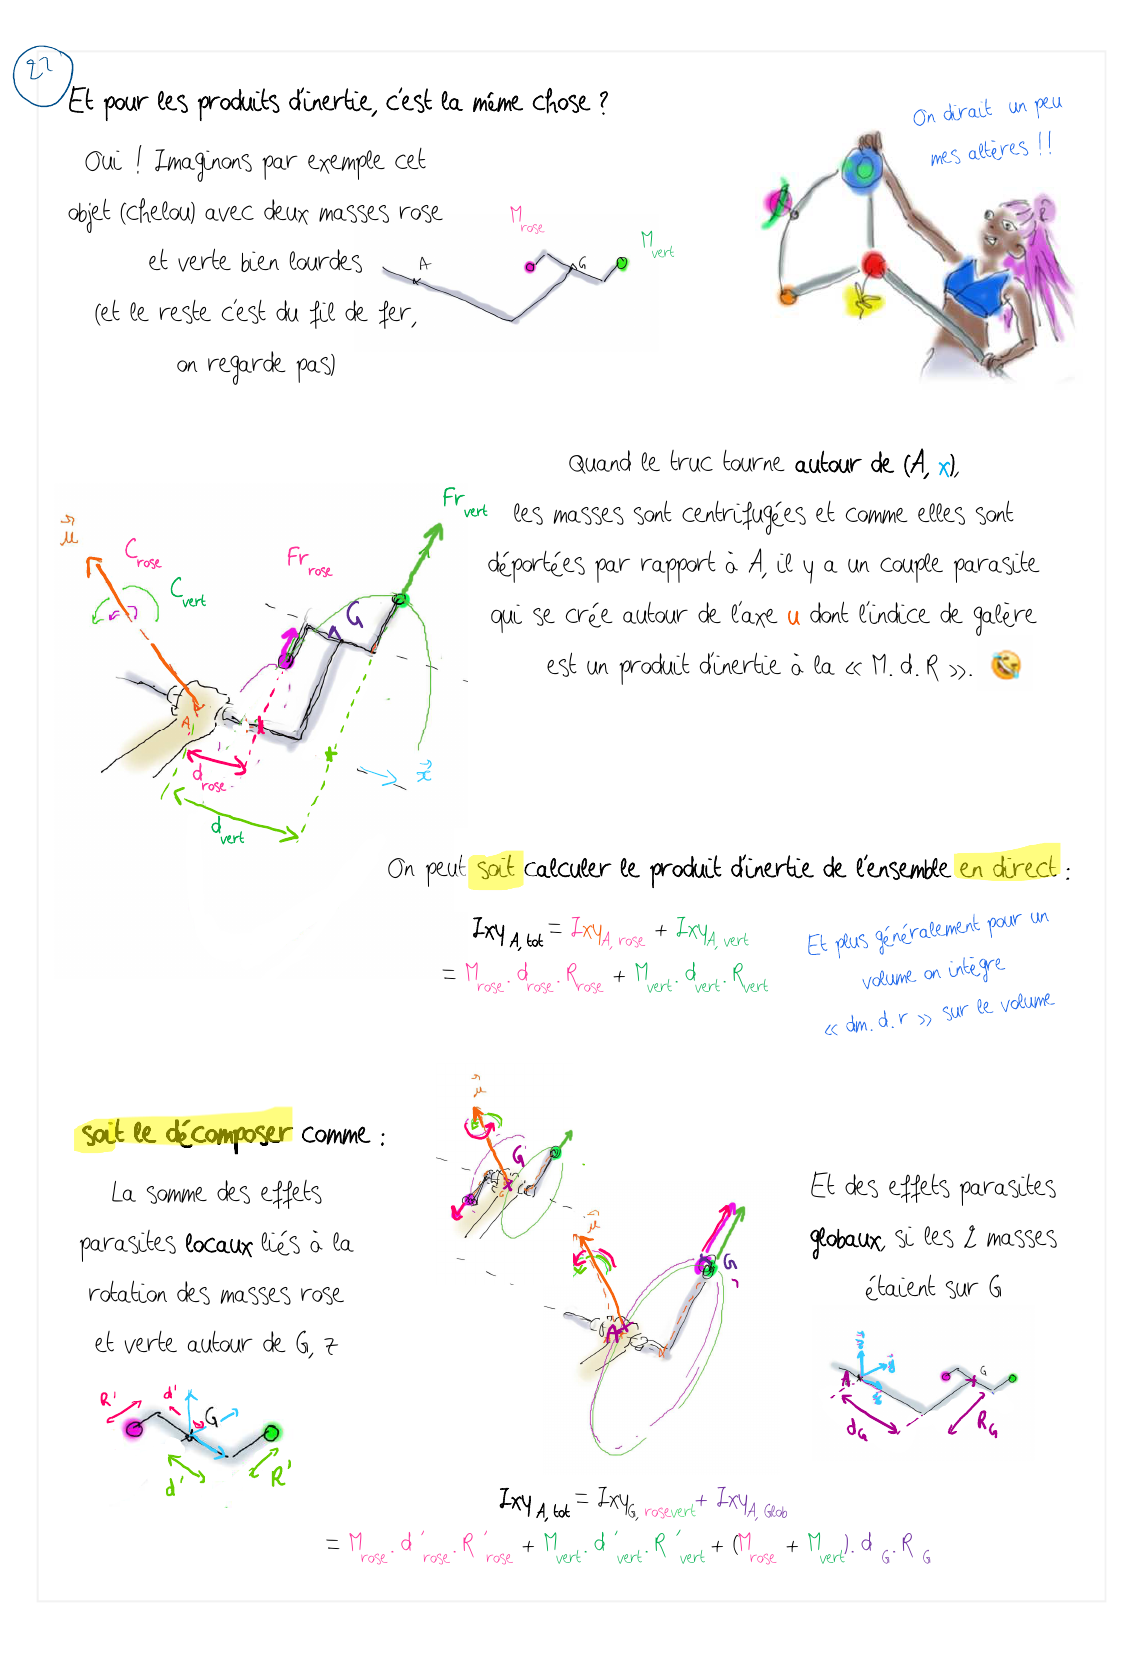 27
Et pour les produits d'inertie, c'est la même chose ?
On dirait un peu
mes altères !!
Oui ! Imaginons par exemple cet
objet (chelou) avec deux masses rose
et verte bien lourdes
(et le reste c'est du fil de fer,
on regarde pas)
M rose
M vert
A
G
Quand le truc tourne autour de (A, x),
les masses sont centrifugées et comme elles sont
déportées par rapport à A, il y a un couple parasite
qui se crée autour de l'axe u dont l'indice de galère
est un produit d'inertie à la « M. d. R ». 🤣
u
C rose
C vert
Fr rose
Fr vert
G
A
x
d rose
d vert
On peut soit calculer le produit d'inertie de l'ensemble en direct :
Ixy A, tot = Ixy A, rose + Ixy A, vert
= M rose . d rose . R rose + M vert . d vert . R vert
Et plus généralement pour un
volume on intègre
« dm. d. r » sur le volume
soit le décomposer comme :
La somme des effets
parasites locaux liés à la
rotation des masses rose
et verte autour de G, z
u
G
u
G
A
Et des effets parasites
globaux, si les 2 masses
étaient sur G
R'
d'
G
d'
R'
A
G
d G
R G
Ixy A, tot = Ixy G, rosevert + Ixy A, Glob
= M rose . d' rose . R' rose + M vert . d' vert . R' vert + (M rose + M vert). d G . R G